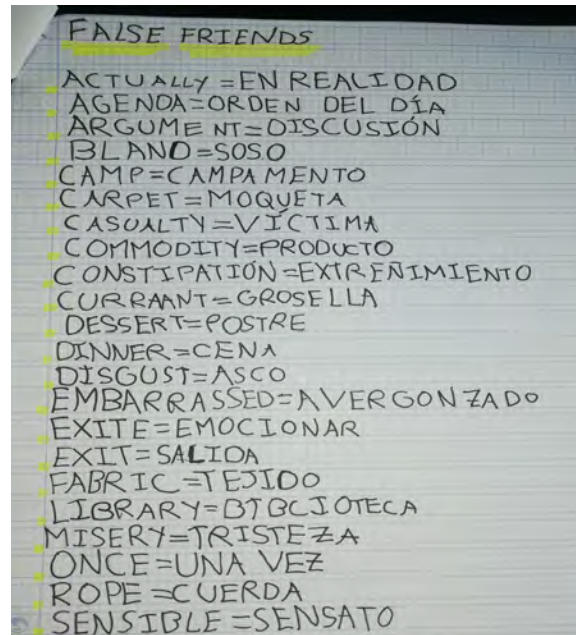 FALSE FRIENDS
ACTUALLY=EN REALIDAD
AGENDA=ORDEN DEL DÍA
ARGUMENT=DISCUSIÓN
BLAND=SOSO
CAMP=CAMPAMENTO
CARPET=MOQUETA
CASUALTY=VÍCTIMA
COMMODITY=PRODUCTO
CONSTIPATIÓN=EXTREÑIMIENTO
CURRAANT=GROSELLA
DESSERT=POSTRE
DINNER=CENA
DISGUST=ASCO
EMBARRASSED=AVERGONZADO
EXITE=EMOCIONAR
EXIT=SALIDA
FABRIC=TEJIDO
LIBRARY=BIBLIOTECA
MISERY=TRISTEZA
ONCE=UNA VEZ
ROPE=CUERDA
SENSIBLE=SENSATO